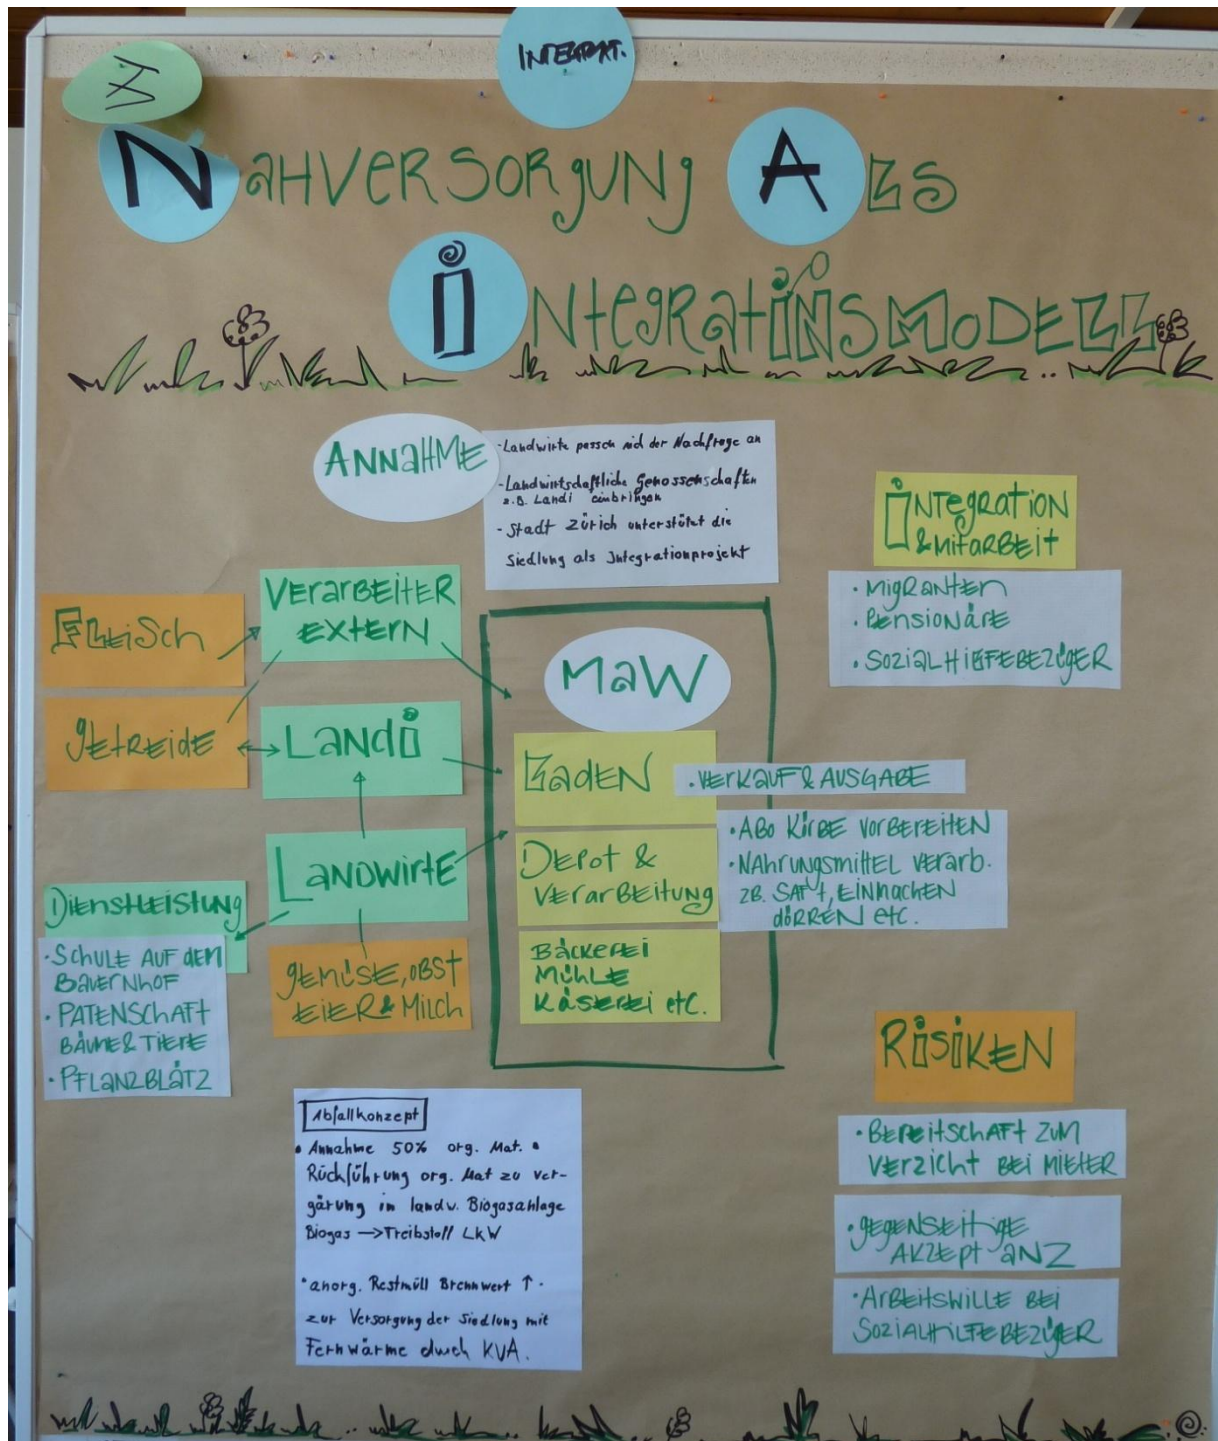 INTEGRAT.
NAHVERSORGUNG ALS
INTEGRATIONSMODELL
ANNAHME
- Landwirte passen sich der Nachfrage an
- Landwirtschaftliche Genossenschaften
z.B. Landi einbringen
- Stadt Zürich unterstützt die
Siedlung als Integrationprojekt
INTEGRATION
& MITARBEIT
• MIGRANTEN
• PENSIONÄRE
• SOZIALHIEFEBEZÜGER
FLEISCH
VERARBEITER
EXTERN
GETREIDE
LANDI
LANDWIRTE
DIENSTLEISTUNG
• SCHULE AUF DEM
BAUERNHOF
• PATENSCHAFT
BÄUME & TIERE
• PFLANZBLÄTZ
GEMÜSE, OBST
EIER & MILCH
MaW
LADEN
• VERKAUF & AUSGABE
DEPOT &
VERARBEITUNG
• ABO KÖRBE VORBEREITEN
• NAHRUNGSMITTEL VERARB.
ZB. SAFT, EINMACHEN
DÖRREN ETC.
BÄCKEREI
MÜHLE
KÄSEREI ETC.
RISIKEN
• BEREITSCHAFT ZUM
VERZICHT BEI MIETER
• GEGENSEITIGE
AKZEPTANZ
• ARBEITSWILLE BEI
SOZIALHILFEBEZÜGER
Abfallkonzept
• Annahme 50% org. Mat. •
Rückführung org. Mat zu Ver-
gärung in landw. Biogasanlage
Biogas → Treibstoff LKW
• anorg. Restmüll Brennwert ↑ -
zur Versorgung der Siedlung mit
Fernwärme durch KVA.